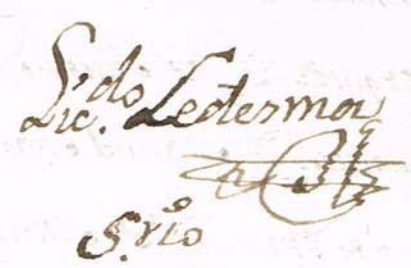 Lic.do Ledesma
S.rio